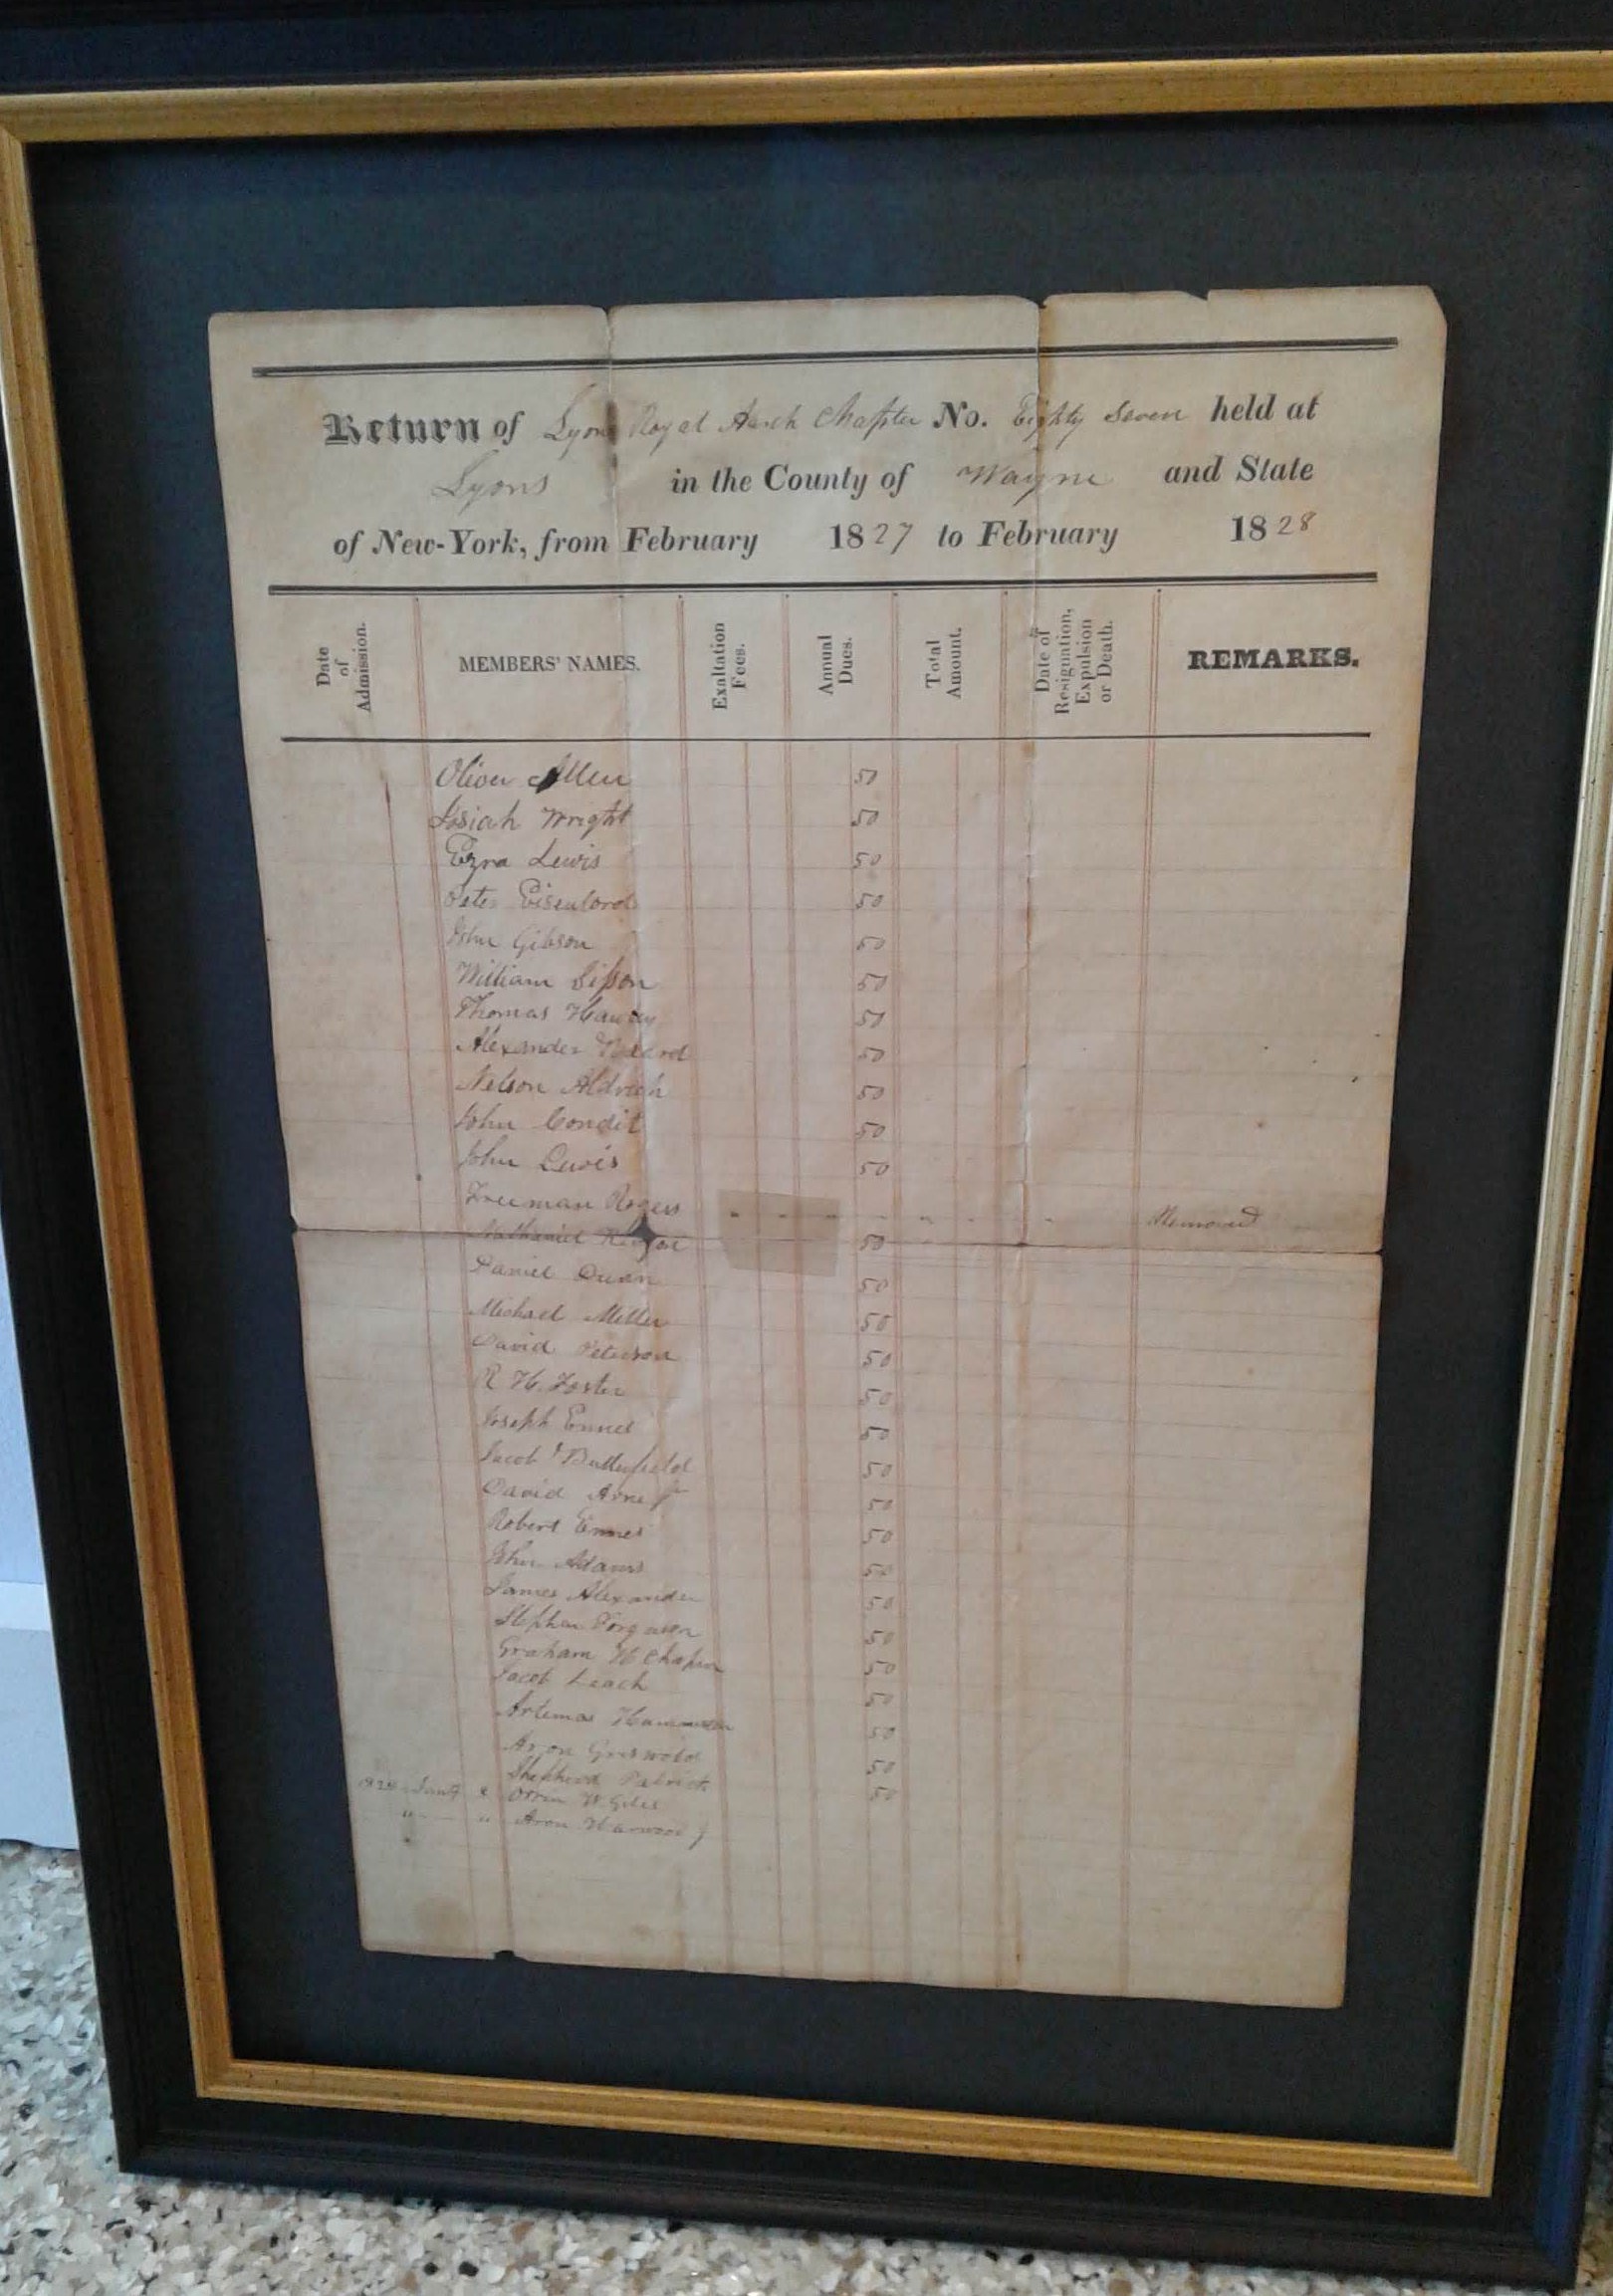 Return of Lyons Royal Aarch Chapter No. Eighty Seven held at
Lyons in the County of Wayne and State
of New-York, from February 1827 to February 1828
Date of Admission. MEMBERS' NAMES. Exaltation Fees. Annual Dues. Total Amount. Date of Resignation, Expulsion or Death. REMARKS.
Oliver Allen 50
Josiah Wright 50
Ezra Lewis 50
Peter Eisenlord 50
John Gibson 50
William Sisson 50
Thomas 50
Alexander 50
Nelson Aldrich 50
John Condit 50
John Lewis 50
Freeman Rogers - - - - - - Removed
Nathaniel 50
Daniel 50
Michael Miller 50
David Peterson 50
R H. Foster 50
Joseph Ennes 50
Jacob Butterfield 50
David 50
Robert Ennes 50
John Adams 50
James Alexander 50
Stephen Ferguson 50
Graham H Chapin 50
Jacob Leach 50
Artemas 50
Aron Griswold 50
Shepherd Patrick 50
1828 Orrin W Giles
" " Aron Harwood